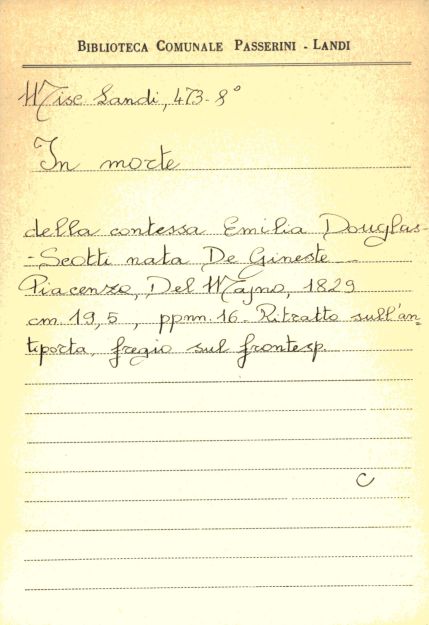 BIBLIOTECA COMUNALE PASSERINI - LANDI
Misc. Landi, 473-8°
In morte
della contessa Emilia Douglas-
-Scotti nata De Gineste -
Piacenza, Del Majno, 1829
cm. 19,5, ppnn. 16. Ritratto sull'an=
tiporta, fregio sul frontesp.
C